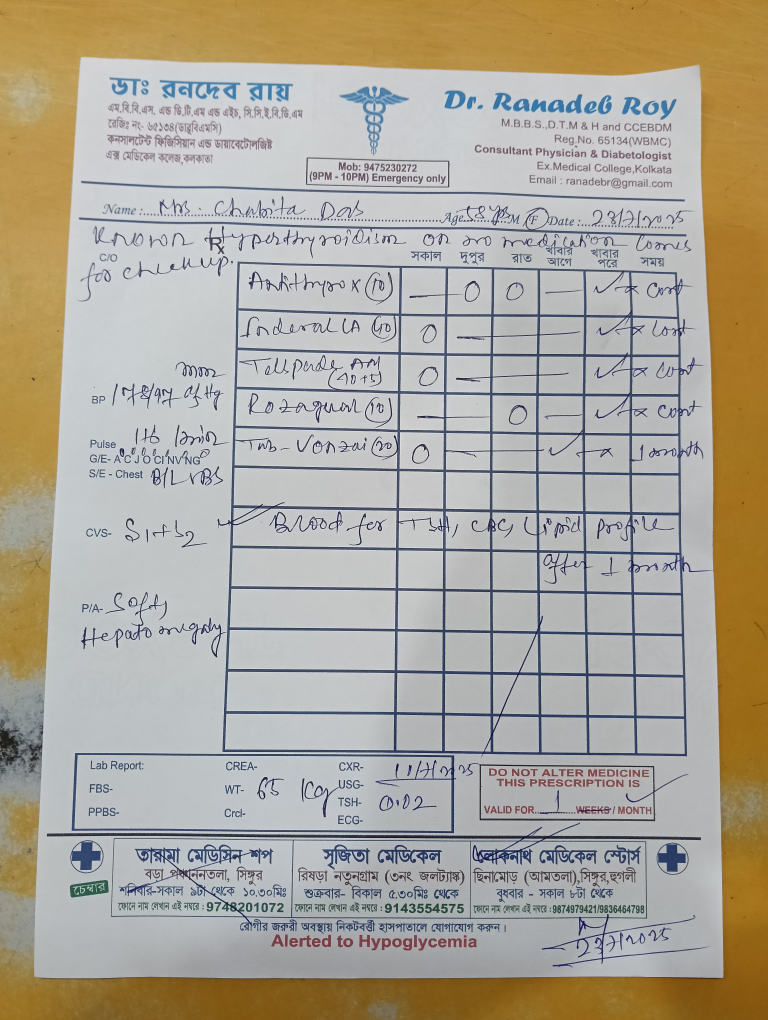 ডাঃ রনদেব রায়
এম.বি.বি.এস. এন্ড ডি.টি.এম এন্ড এইচ, সি.সি.ই.বি.ডি.এম
রেজিঃ নং- ৬৫১৩৪(ডাব্লুবিএমসি)
কনসালটেন্ট ফিজিসিয়ান এন্ড ডায়াবেটোলজিষ্ট
এক্স মেডিকেল কলেজ,কলকাতা
Mob: 9475230272
(9PM - 10PM) Emergency only
Dr. Ranadeb Roy
M.B.B.S.,D.T.M & H and CCEBDM
Reg.No. 65134(WBMC)
Consultant Physician & Diabetologist
Ex.Medical College,Kolkata
Email : ranadebr@gmail.com
Name : Mrs. Chabita Das Age 58 yrs M (F) Date : 23/7/2025
Known Hyperthyroidism on no medication Comes
for checkup.
C/O
Rx
সকাল দুপুর রাত খাবার আগে খাবার পরে সময়
Antithyrox (10) — 0 0 — ✓ x cont
Inderal LA (40) 0 — ✓ x cont
Tellpride AM (40+5) 0 — ✓ x cont
Rozagual (10) — 0 — ✓ x cont
Tab- Vonzai (20) 0 — ✓ x 1 month
BP 178/97 mm of Hg
Pulse 116 /min
G/E- A C J O Cl NV NG
S/E - Chest B/L VBS
CVS- S1+S2
Blood for TSH, CBC, Lipid Profile
after 1 month
P/A- Soft,
Hepatomegaly
Lab Report: CREA- CXR- 11/7/2025
FBS- WT- 65 kg USG-
TSH- 0.02
PPBS- Crcl- ECG-
DO NOT ALTER MEDICINE
THIS PRESCRIPTION IS
VALID FOR 1 WEEKS / MONTH
চেম্বার
তারামা মেডিসিন শপ
বড়া প্রধাননতলা, সিঙ্গুর
শনিবার-সকাল ৯টা থেকে ১০.৩০মিঃ
ফোনে নাম লেখান এই নম্বরে : 9748201072
সৃজিতা মেডিকেল
রিষড়া নতুনগ্রাম (৩নং জলট্যাঙ্ক)
শুক্রবার- বিকাল ৫.৩০মিঃ থেকে
ফোনে নাম লেখান এই নম্বরে : 9143554575
লোকনাথ মেডিকেল স্টোর্স
ছিনামোড় (আমতলা),সিঙ্গুর,হুগলী
বুধবার - সকাল ৮টা থেকে
ফোনে নাম লেখান এই নম্বরে : 9874979421/9836464798
রোগীর জরুরী অবস্থায় নিকটবর্ত্তী হাসপাতালে যোগাযোগ করুন।
Alerted to Hypoglycemia
23/7/2025